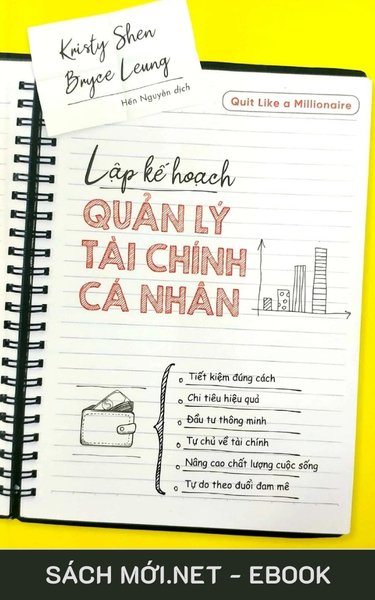 Kristy Shen
Bryce Leung
Hến Nguyên dịch
Quit Like a Millionaire
Lập kế hoạch
QUẢN LÝ
TÀI CHÍNH
CÁ NHÂN
Tiết kiệm đúng cách
Chi tiêu hiệu quả
Đầu tư thông minh
Tự chủ về tài chính
Nâng cao chất lượng cuộc sống
Tự do theo đuổi đam mê
SÁCH MỚI.NET - EBOOK